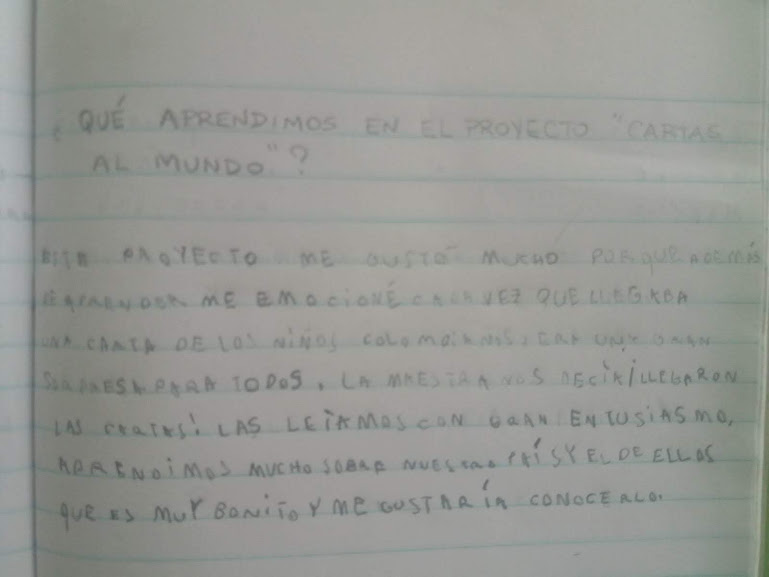 ¿QUÉ APRENDIMOS EN EL PROYECTO "CARTAS
AL MUNDO"?
ESTE PROYECTO ME GUSTÓ MUCHO PORQUE ADEMÁS
DE APRENDER ME EMOCIONÉ CADA VEZ QUE LLEGABA
UNA CARTA DE LOS NIÑOS COLOMBIANOS, ERA UNA GRAN
SORPRESA PARA TODOS. LA MAESTRA NOS DECÍA ¡LLEGARON
LAS CARTAS! LAS LEÍAMOS CON GRAN ENTUSIASMO,
APRENDIMOS MUCHO SOBRE NUESTRO PAÍS Y EL DE ELLOS
QUE ES MUY BONITO Y ME GUSTARÍA CONOCERLO.